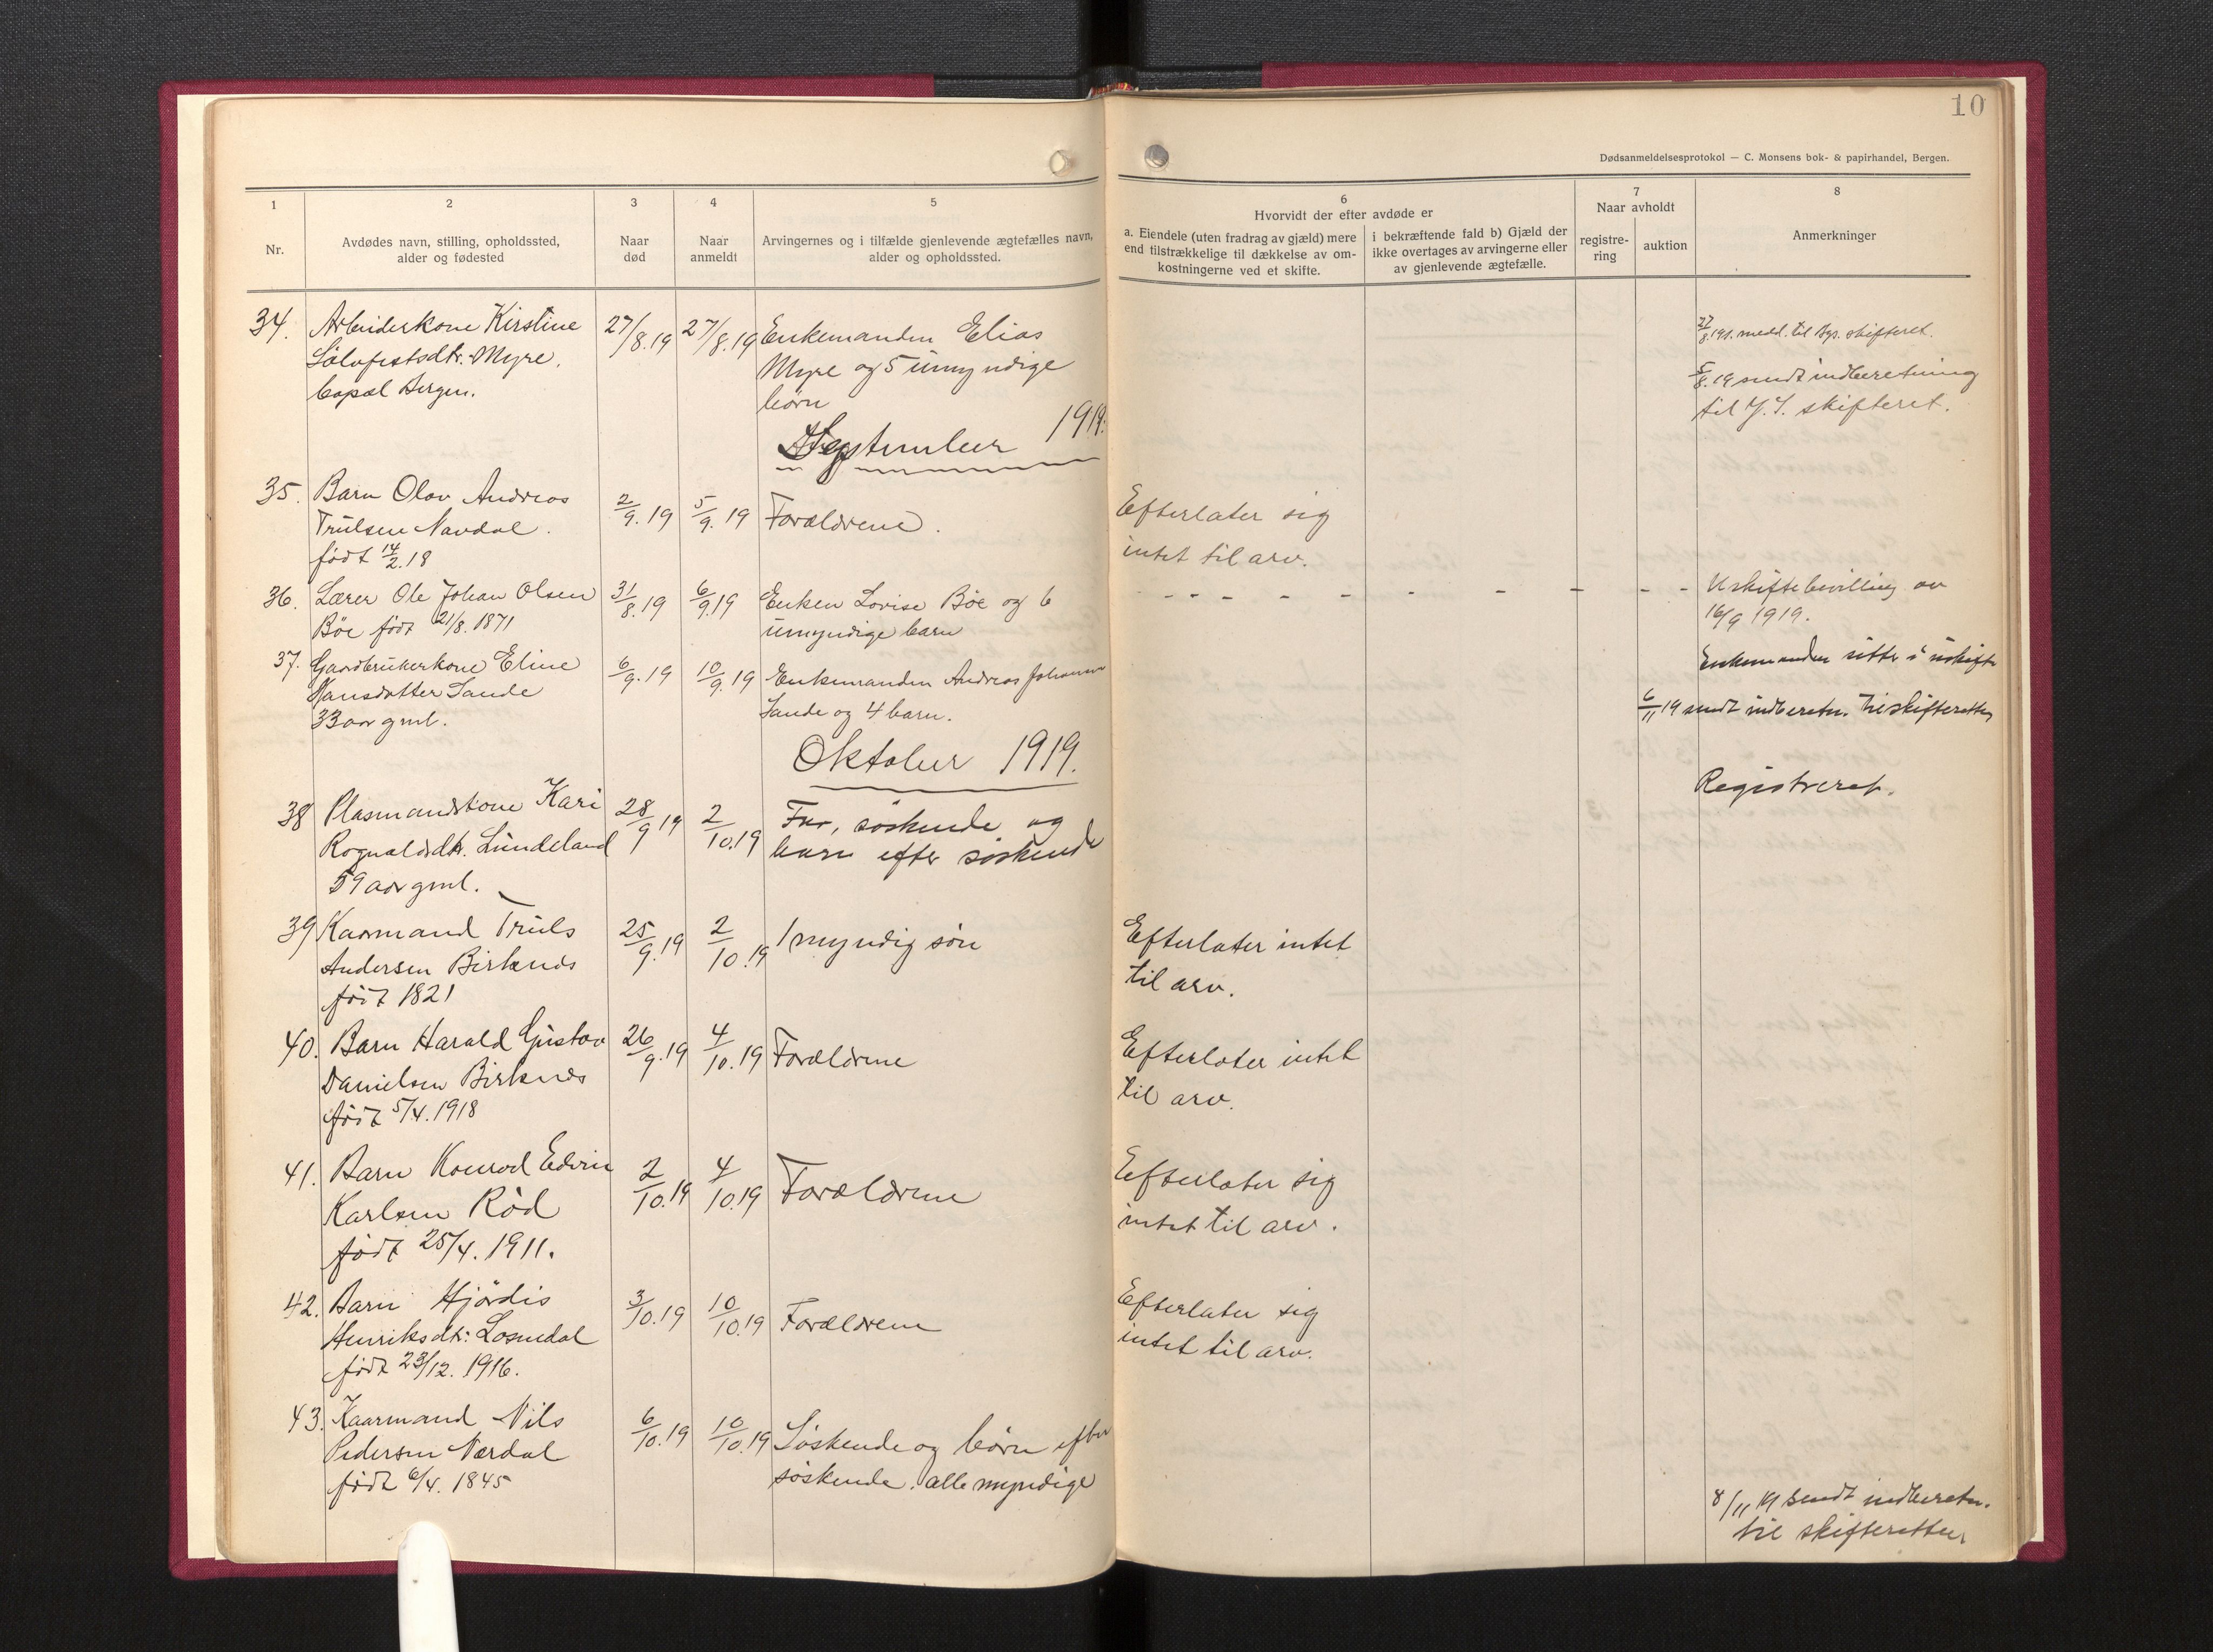 10
Dødsanmeldelsesprotokol — C. Monsens bok- & papirhandel, Bergen.
1
2
3
4
5
6
7
8
Nr.
Avdødes navn, stilling, opholdssted,
alder og fødested
Naar
død
Naar
anmeldt
Arvingernes og i tilfælde gjenlevende ægtefælles navn,
alder og opholdssted.
Hvorvidt der efter avdøde er
a. Eiendele (uten fradrag av gjæld) mere
end tilstrækkelige til dækkelse av om-
kostningerne ved et skifte.
i bekræftende fald b) Gjæld der
ikke overtages av arvingerne eller
av gjenlevende ægtefælle.
Naar avholdt
registre-
ring
auktion
Anmerkninger
34. Arbeiderkone Kirstine 27/8.19 27/8.19 Enkemanden Elias
Myre. Myre og 5 umyndige
Bergen. børn
27/8.191. medd. til skifteret.
5/8.19 sendt indberetning
til skifteret.
September 1919.
35. Barn Olav Andreas 2/9.19 5/9.19 Forældrene. Efterlater sig
Trulsen Navdal. intet til arv.
født 14/2.18
36. Lærer Ole Johan Olsen 31/8.19 6/9.19 Enken Lovise Böe og 6 - - - - - - - - - - Uskiftebevilling av
Böe født 21/8. 1871 umyndige barn 16/9 1919.
37. Gardbrukerkone Eline 6/9.19 10/9.19 Enkemanden Andreas Johansen Enkemanden sitter i uskifte
Hansdatter Sande Sande og 4 barn. 6/11 19 sendt indberetn. til skifteretten
33 aar gml.
Oktober 1919.
38 Plasmandskone Kari 28/9 19 2/10.19 Far, søskende og Registreret.
Rognaldsdtr. Lundeland barn efter søskende
59 aar gml.
39 Kaarmand Truls 25/9.19 2/10.19 1 myndig søn Efterlater intet
Andersen Birknes til arv.
født 1821
40. Barn Harald Gustav 26/9.19 4/10.19 Forældrene Efterlater intet
Danielsen Birknes til arv.
født 5/4. 1918
41. Barn Konrad Edvin 2/10.19 4/10.19 Forældrene Efterlater sig
Karlsen Röd intet til arv.
født 25/4. 1911.
42. Barn Hjördis 3/10.19 10/10.19 Forældrene Efterlater sig
Henriksdtr: Losnedal intet til arv.
født 23/12. 1916.
43. Kaarmand Nils 6/10.19 10/10.19 Søskende og børn efter
Pedersen Nærdal søskende. alle myndige
født 6/4. 1845
8/11 19 sendt indberetn.
til skifteretten